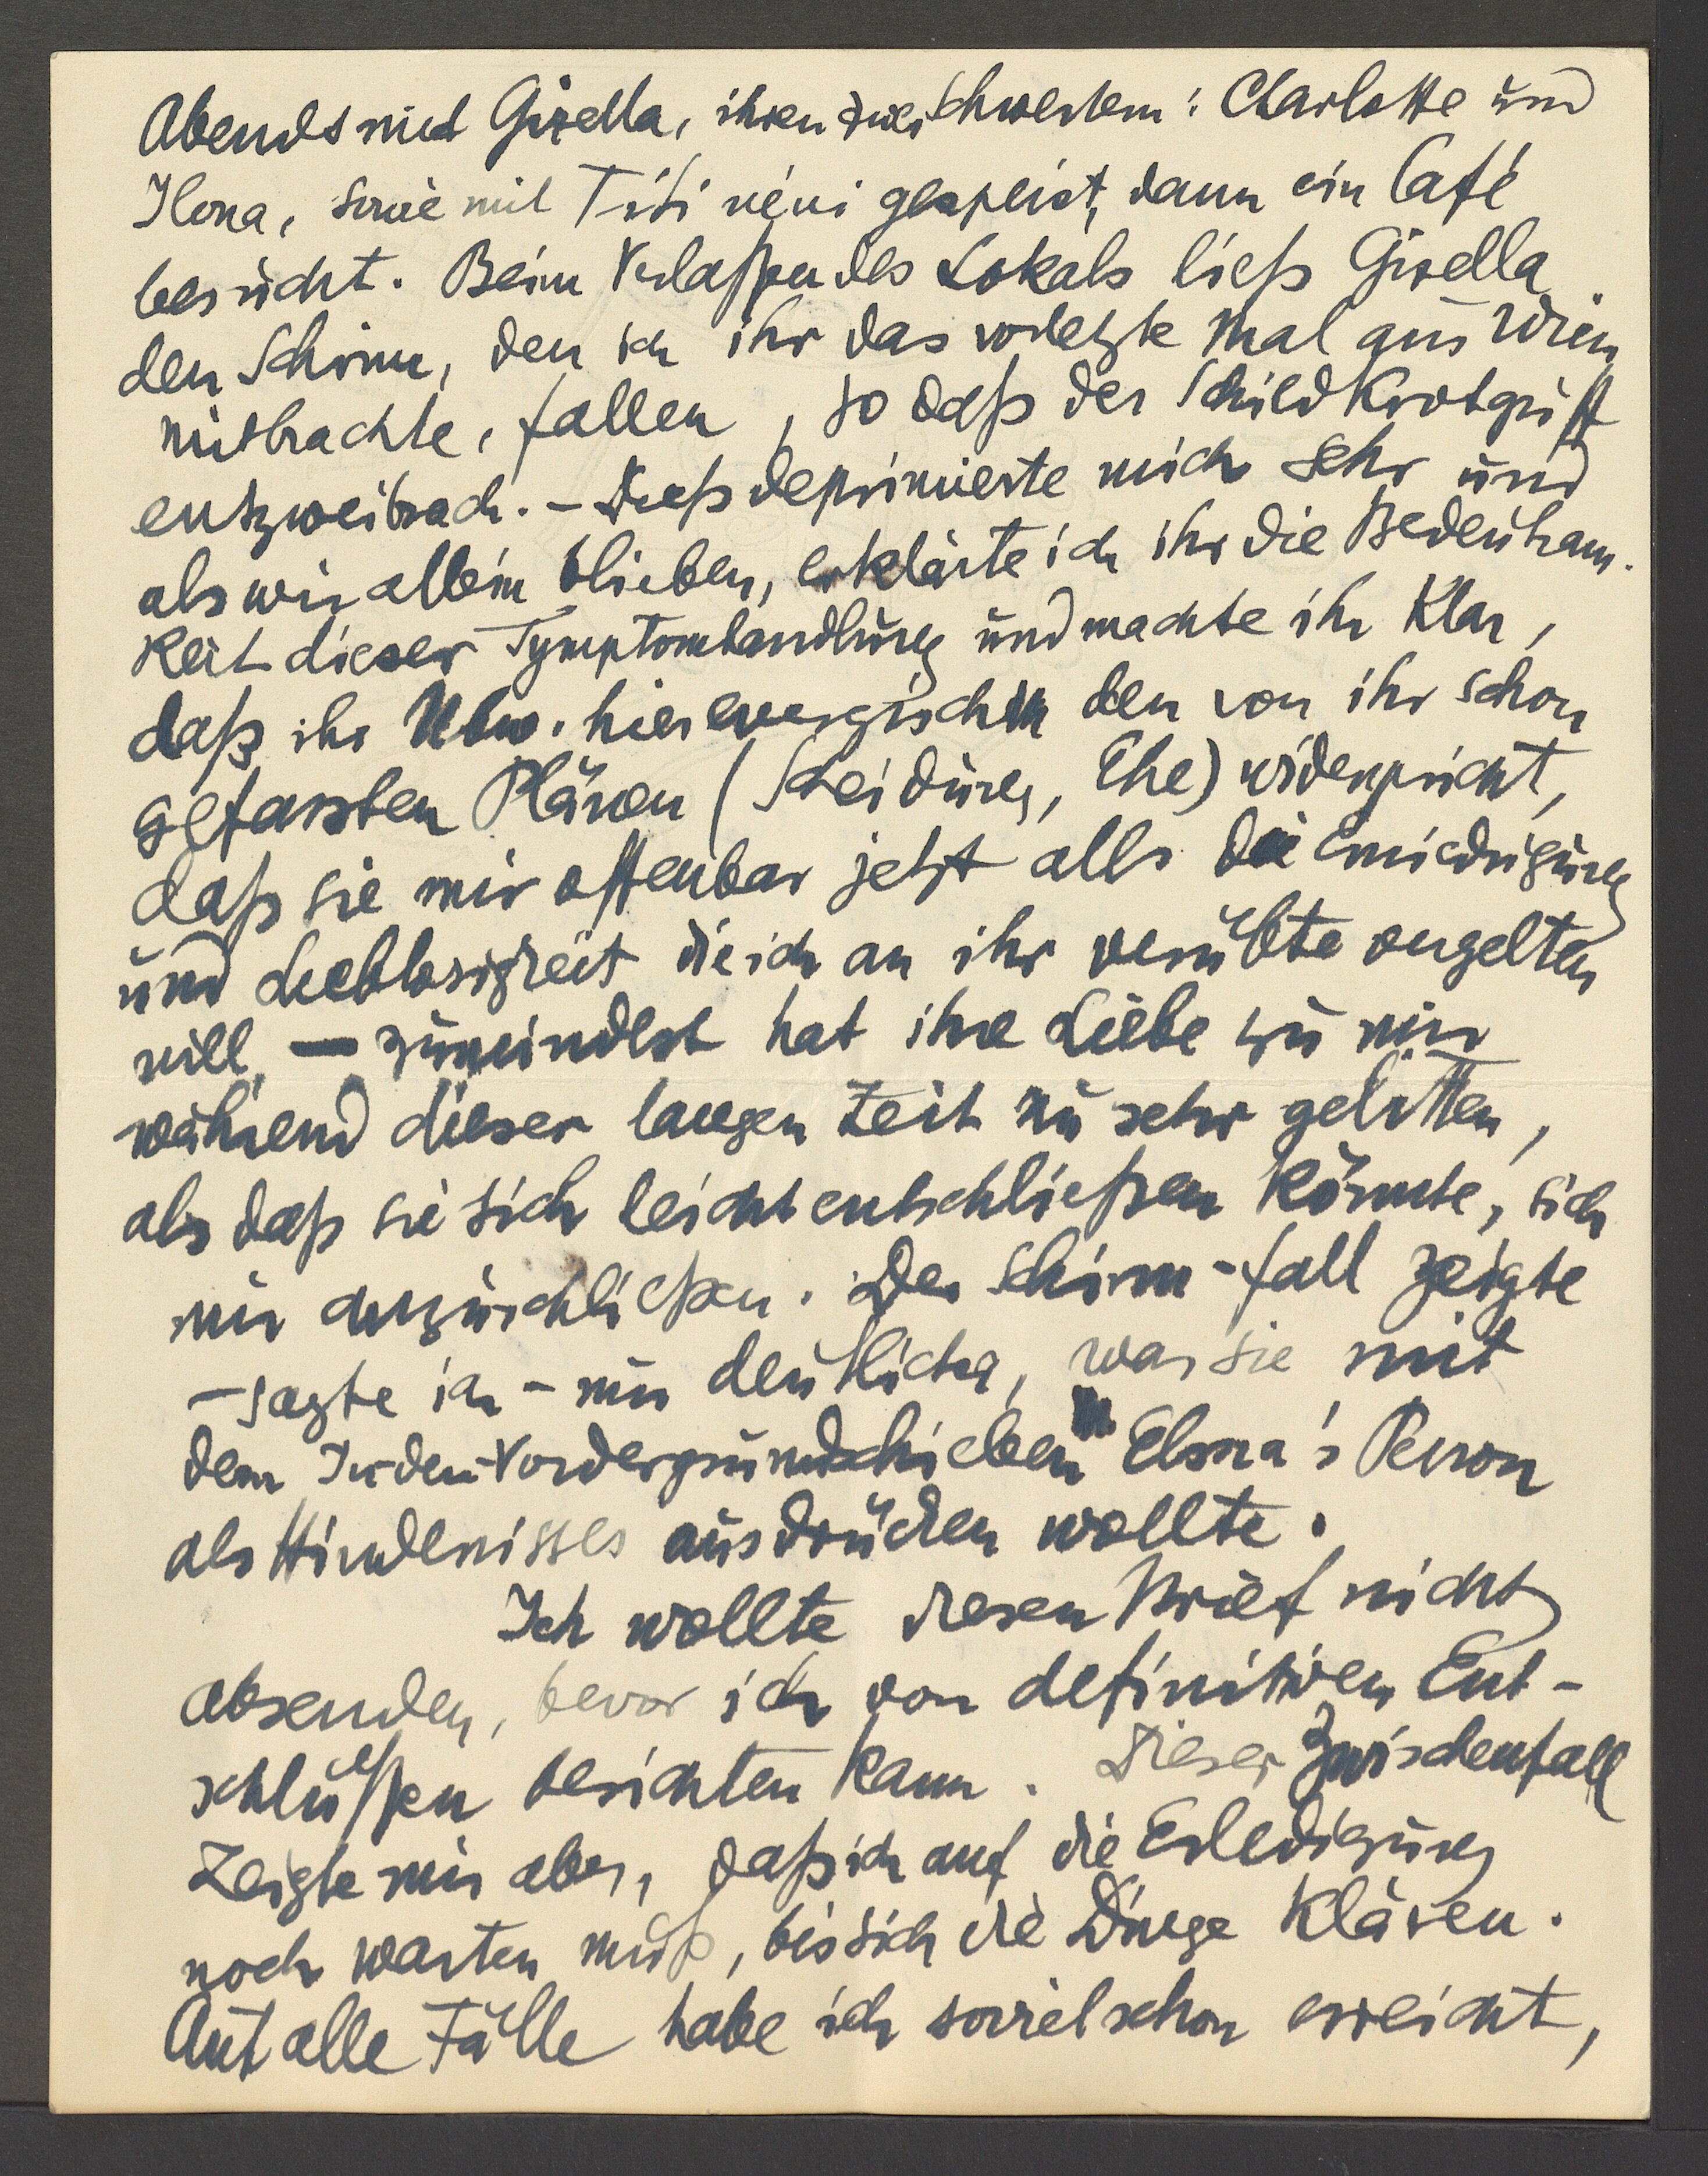 Abends mit Gisella, ihren zwei Schwestern: Charlotte und
Ilona, sowie mit Titi néni gespeist, dann ein Café
besucht. Beim Verlaßen des Lokals ließ Gisella
den Schirm, den ich ihr das vorletzte Mal aus Wien
mitbrachte, fallen, so daß der Schildkrotgriff
entzweibrach. – Dieß deprimierte mich sehr und
als wir allein blieben, erklärte ich ihr die Bedeutsam-
keit dieser Symptomhandlung und machte ihr klar,
daß ihr Ubw. hier energisch den von ihr schon
gefassten Plänen (Scheidung, Ehe) widerspricht,
daß sie mir offenbar jetzt alle die Erniedrigung
und Lieblosigkeit die ich an ihr verübte vergelten
will, – zumindest hat ihre Liebe zu mir
während dieser langen Zeit zu sehr gelitten,
als daß sie sich leicht entschließen könnte, sich
mir anzuschließen. Der Schirm-fall zeigte
– sagte ich – nur deutlicher, was sie mit
dem In-den-Vordergrundschieben Elma's Person
als Hindernisses ausdrücken wollte.
Ich wollte diesen Brief nicht
absenden, bevor ich von definitiven Ent-
schlüßen berichten kann. Dieser Zwischenfall
zeigte mir aber, daß ich auf die Erledigung
noch warten muß, bis sich die Dinge klären.
Auf alle Fälle habe ich soviel schon erreicht,